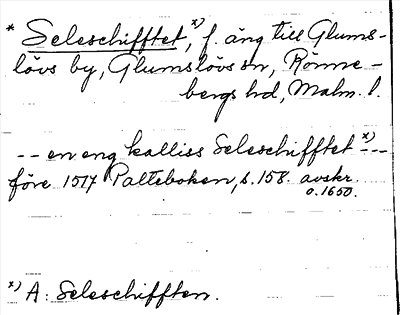 * Seleschifftet, x) f. äng till Glums-
lövs by, Glumslövs sn, Rönne-
bergs hd, Malm. l.
-- en eng kalliss Seleschifftet x) ---
före 1517 Palteboken, s. 158. avskr.
o. 1650.
x) A: Seleschifften.